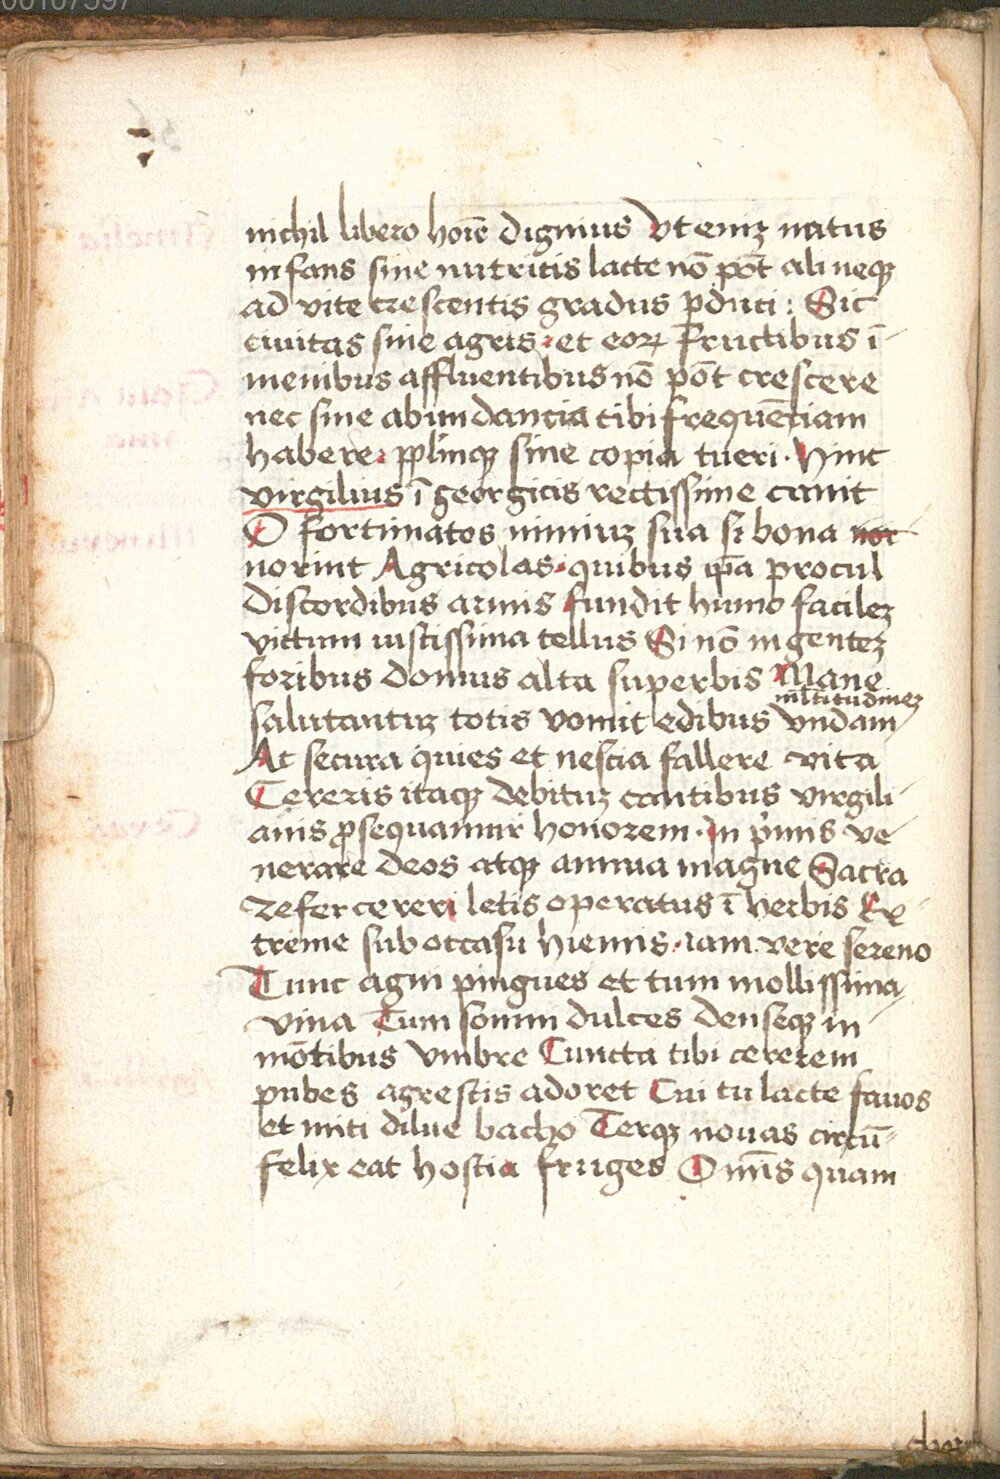 nichil libero hoīe dignius Vt eniꝫ natus
infans sine nutricis lacte nō pōt ali neqꝫ
ad vite crescentis gradus ꝑduci : Sic
ciuitas sine agris · et eoꝝ fructibus ī
menibus affluentibus nō pōt crescere
nec sine abundancia cibi frequēciam
habere : pplūqꝫ sine copia tueri · Hinc
virgilius ī georgicis rectissime canit
O fortunatos nimiuꝫ sua si bona nor
norint Agricolas · quibus ip̄a procul
discordibus armis fundit humo facileꝫ
victum iustissima tellus Si nō ingenteꝫ
foribus domus alta superbis Mane
ml̄titudineꝫ
salutantuꝫ totis vomit edibus vndam
At secura quies et nescia fallere vita
Cereris itaqꝫ debituꝫ cantibus virgili
anis ꝓsequamur honorem · In primis ve
nerare deos atqꝫ annua magne Sacra
refer cereri letis operatus ī herbis Ex
treme sub occasu hiemis · iam vere sereno
Tunc agni pingues et tum mollissima
vina Tum somni dulces denseqꝫ in
mōtibus vmbre Cuncta tibi cererem
pubes agrestis adoret Cui tu lacte fauos
et miti dilue bacho Terqꝫ nouas circū
felix eat hostia fruges Om̄is quam